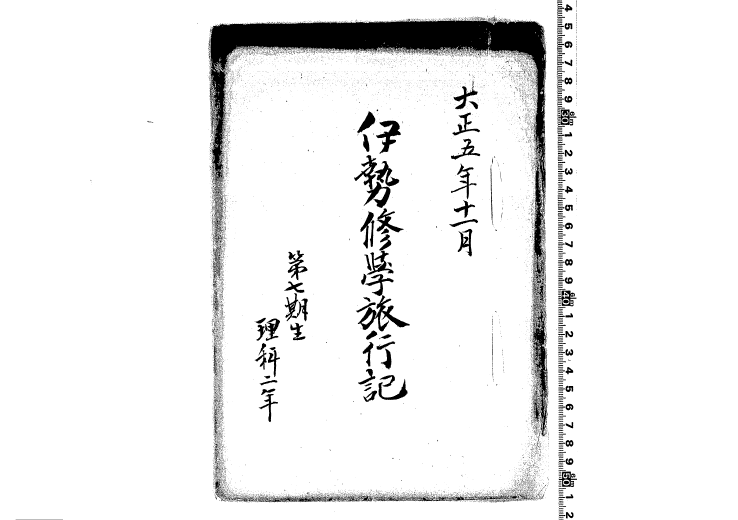 大正五年十一月
伊勢修學旅行記
第七期生
理科二年
4 5 6 7 8 9 30 1 2 3 4 5 6 7 8 9 40 1 2 3 4 5 6 7 8 9 50 1 2